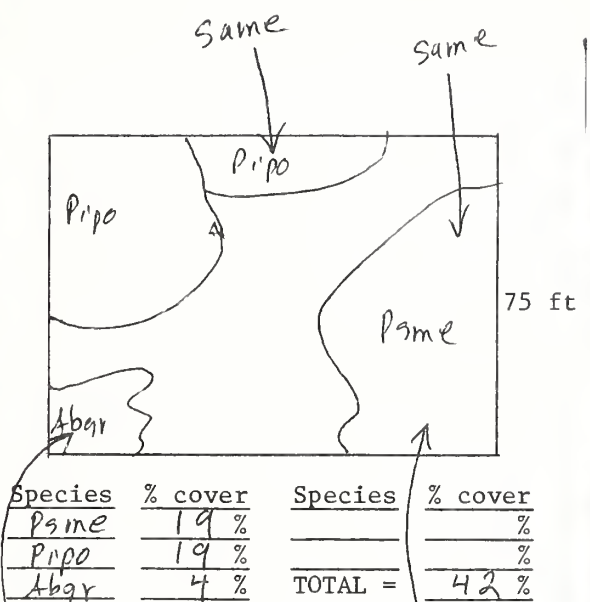 Same
Same
Pipo
Pipo
75 ft
Psme
Abgr
Species % cover Species % cover
Psme 19 % %
Pipo 19 % %
Abgr 4 % TOTAL = 42 %